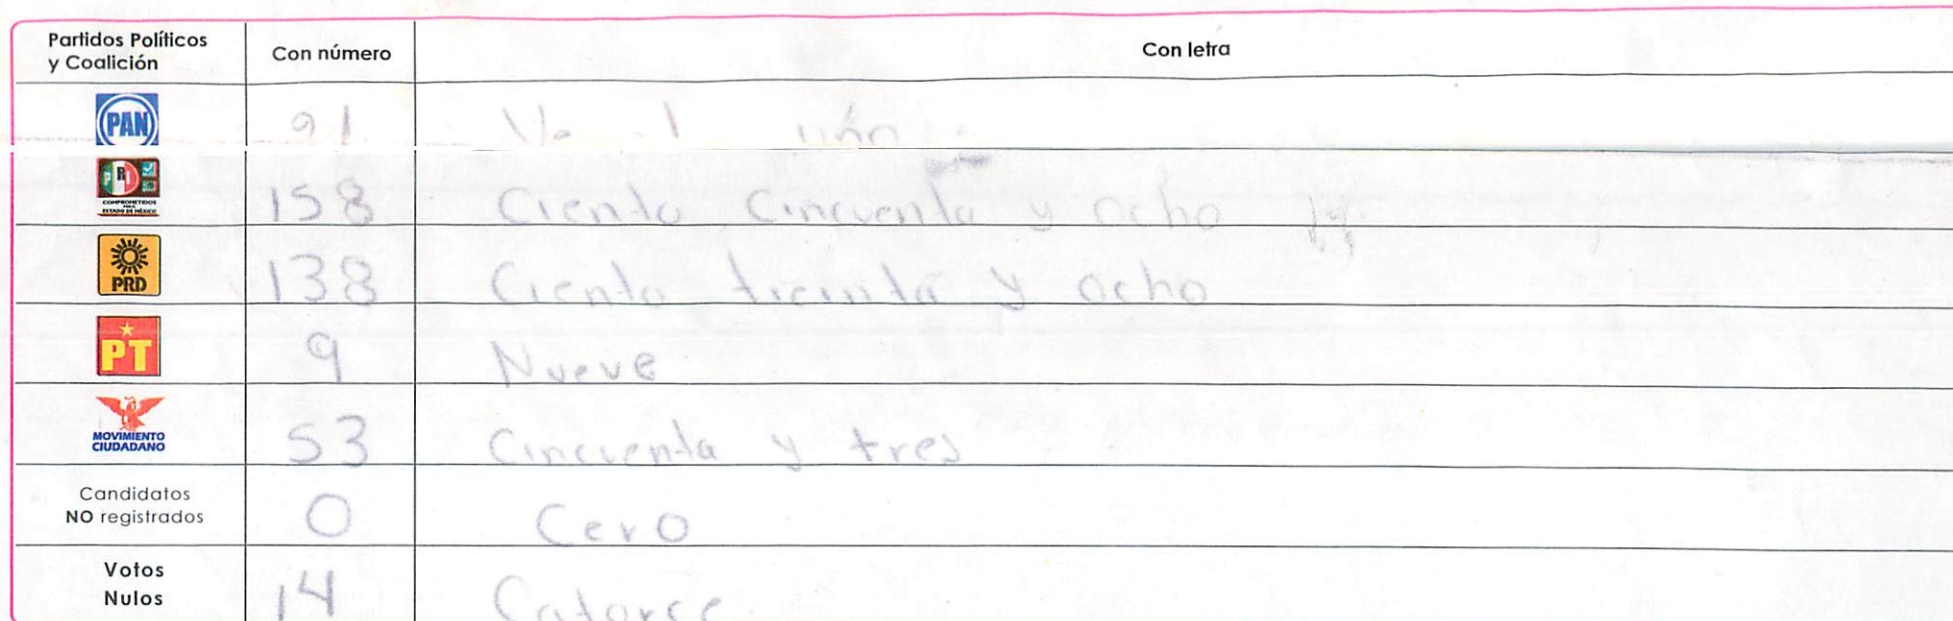 Partidos Políticos y Coalición Con número Con letra
PAN
PRI COMPROMETIDOS ESTADO DE MÉXICO 158 Ciento Cincuenta y ocho
PRD 138 Ciento treinta y ocho
PT 9 Nueve
MOVIMIENTO CIUDADANO 53 Cincuenta y tres
Candidatos NO registrados 0 Cero
Votos Nulos 14 Catorce